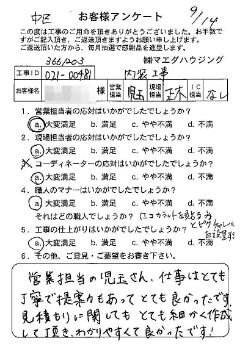 中区 お客様アンケート 9/14
この度は工事のご用命を頂きありがとうございました。お手数で
すがご記入頂き、ご返送頂きますようお願い申し上げます。
ご返送頂いた方から、毎月抽選で感謝品を進呈します。
366,203 ㈱マエダハウジング
工事ID 021-00481 内装工事
お客様名 様 営業担当 児玉 工事担当 正木 IC担当 なし
1. 営業担当者の応対はいかがでしたでしょうか?
a. 大変満足 b. 満足 c. やや不満 d. 不満
2. 現場担当者の応対はいかがでしたでしょうか?
a. 大変満足 b. 満足 c. やや不満 d. 不満
3. コーディネーターの応対はいかがでしたでしょうか?
a. 大変満足 b. 満足 c. やや不満 d. 不満
4. 職人のマナーはいかがでしたでしょうか?
a. 大変満足 b. 満足 c. やや不満 d. 不満
それはどの職人でしょうか?(エコカラットを貼る方
5. 工事の仕上がりはいかがでしたでしょうか?
a. 大変満足 b. 満足 c. やや不満 d. 不満
6. その他、ご意見・ご要望をお書き下さい。
営業担当の児玉さん、仕事はとても
丁寧で提案力もあってとても良かったです。
見積もりに関しても とても細かく作成
して頂き、わかりやすくて良かったです!